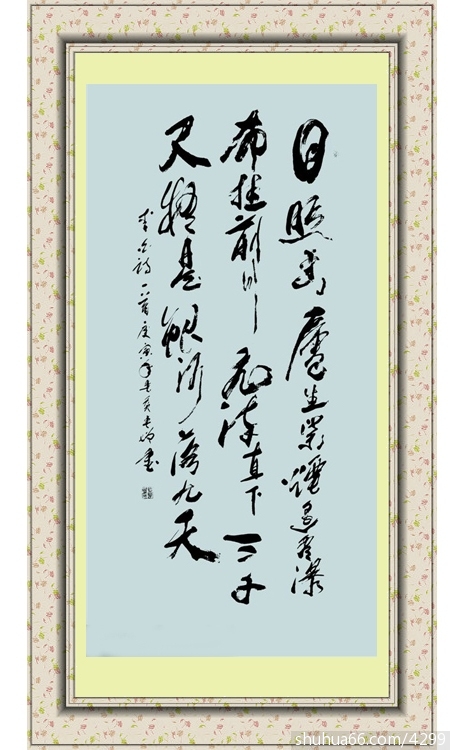 日照香廬生紫煙遥看瀑
布挂前川飛流直下三千
尺疑是銀河落九天
李白詩一首庚寅年書
shuhua66.com/4299